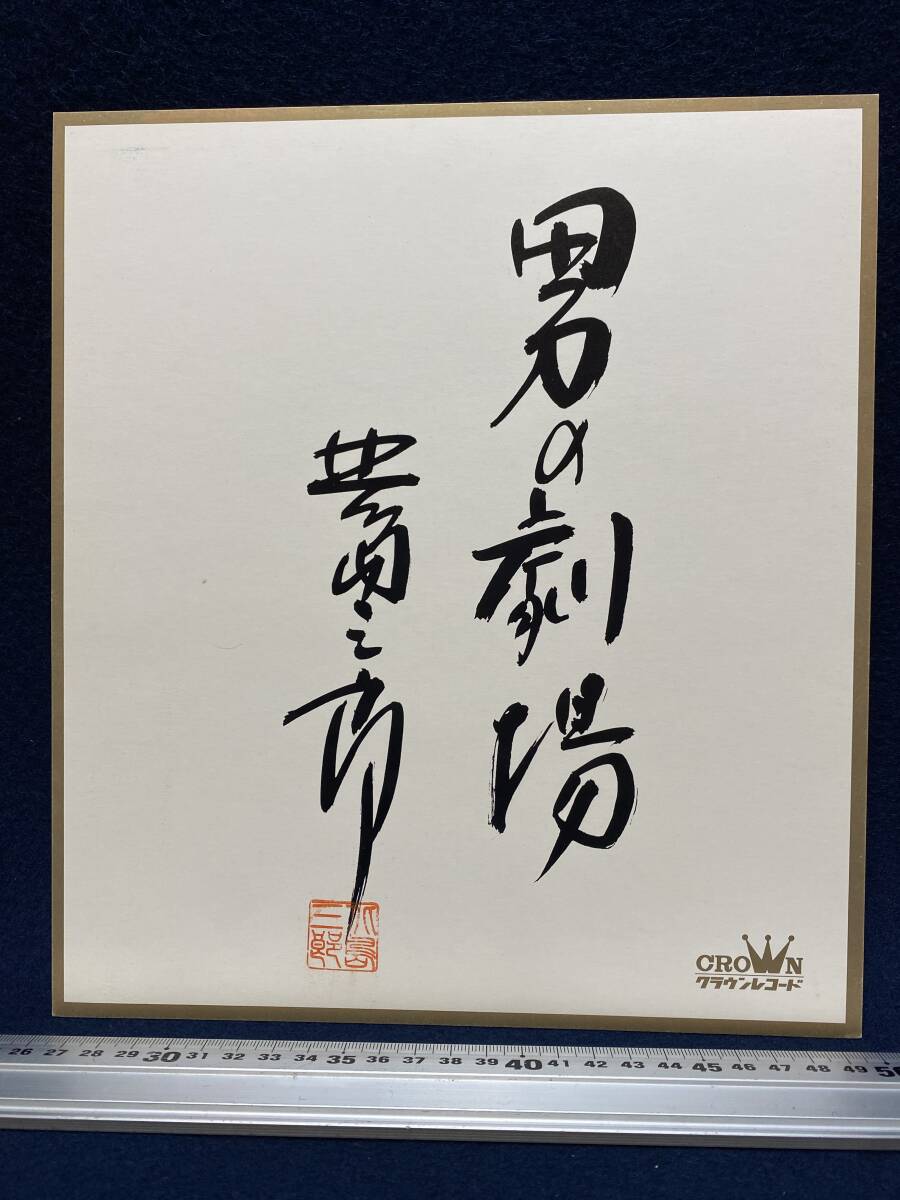 男の劇場
北島三郎
北島三郎
CROWN
クラウンレコード
26 27 28 29 30 31 32 33 34 35 36 37 38 39 40 41 42 43 44 45 46 47 48 49 50